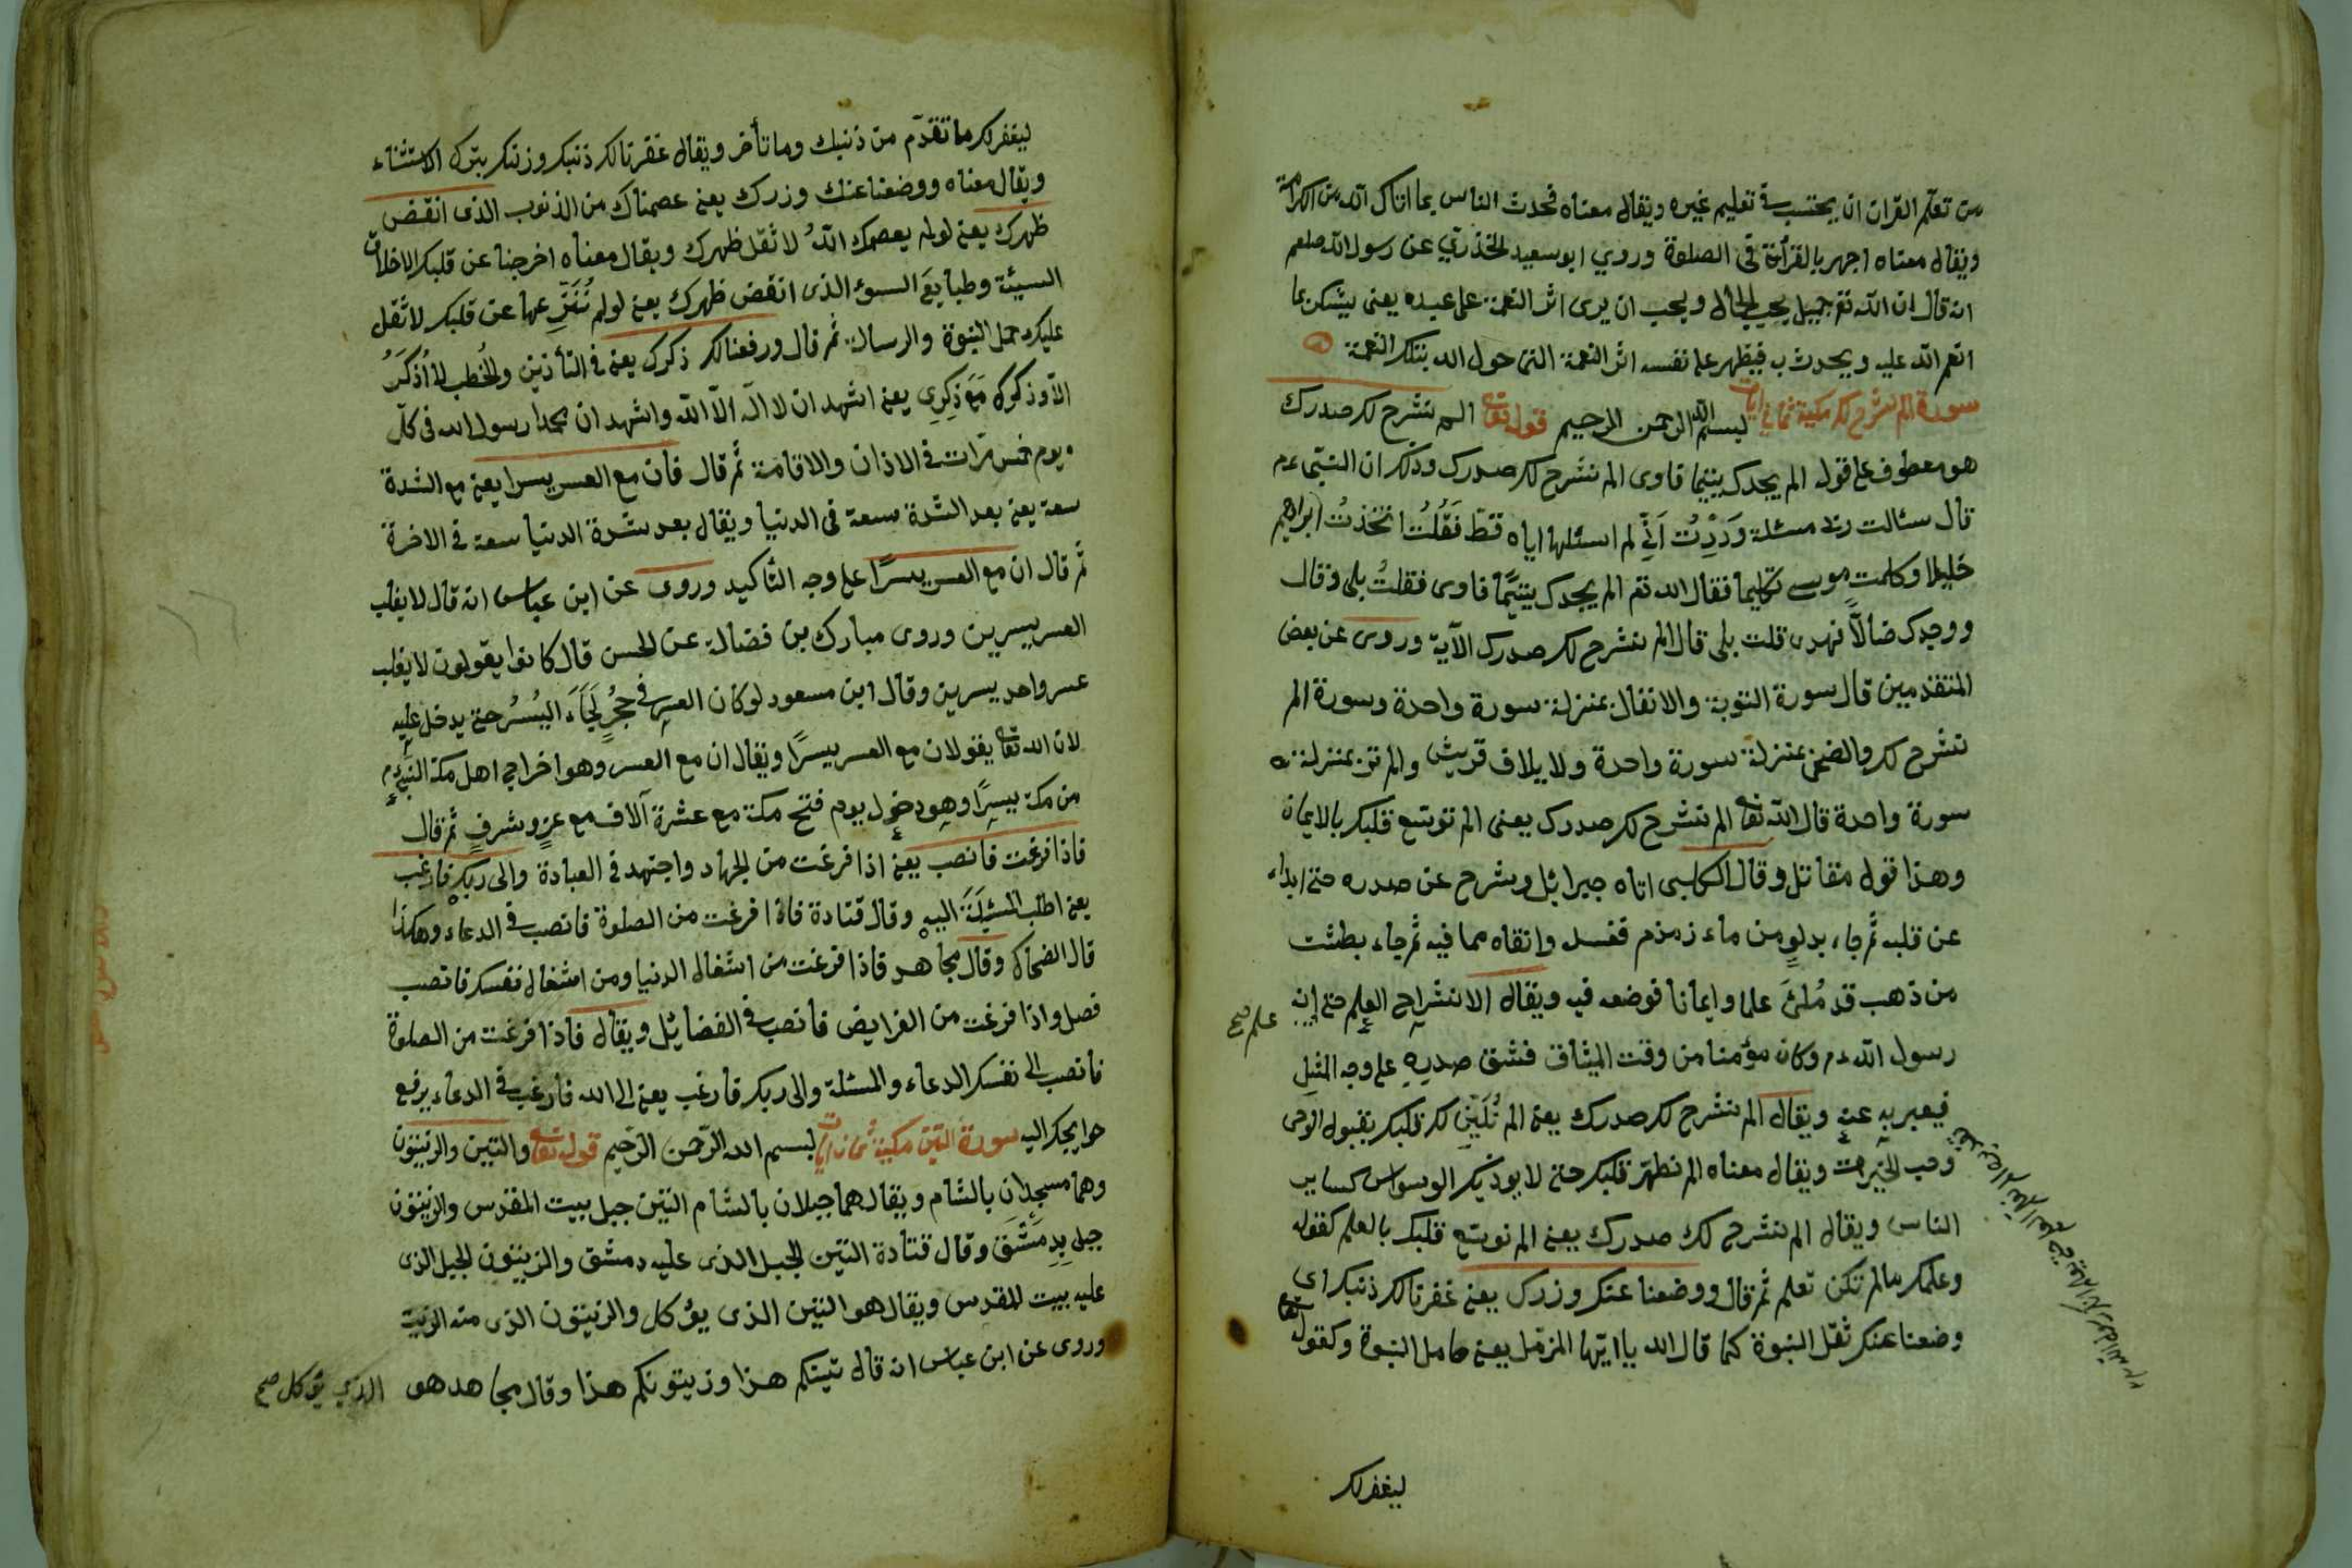 من تعلم القران ان يحتسب في تعليم غيره ويقال معناه فحدث الناس بما اتاك الله من الكرامة
ويقال معناه اجهر بالقرأة في الصلوة وروي ابو سعيد الخذري عن رسول الله صلعم
انه قال ان الله تع جميل يحب الجمال ويحب ان يرى اثر النعمة على عبده يعنى يشكر بما
انعم الله عليه ويحدث به فيظهر على نفسه اثر النعمة التى حول الله بتلك النعمة
سورة الم نشرح لك مكية ثماني ايات بسم الله الرحمن الرحيم قوله تعالى الم نشرح لك صدرك
هو معطوف على قوله الم يجدك يتيما فاوى الم نشرح لك صدرك وذلك ان النبي عم
قال سئالت ربى مسئلة وَدَدْتُ اَنّي لم اسئلها اياه قطّ فَقُلْتُ اتخذتُ ابراهيم
خليلا وكلمت موسى تكليما فقال الله تع الم يجدك يتيمًا فاوى فقلتُ بلى وقال
ووجدك ضالاًّ فهدى قلت بلى قال الم نشرح لك صدرك الآية وروى عن بعض
المتقدمين قال سورة التوبة والانفال بمنزلة سورة واحدة وسورة الم
نشرح لك والضحى بمنزلة سورة واحدة ولايلاف قريش والم تر بمنزلة
سورة واحدة قال الله تعا الم نشرح لك صدرك يعنى الم نوسّع قلبك بالايمان
وهذا قول مقاتل وقال الكلبى اتاه جبرائيل وشرح عن صدره حتى ابداء
عن قلبه ثم جاء بدلوٍ من ماء زمزم فغسله وانقاه مما فيه ثم جاء بطشت
من ذهب قد مُلئَ علما وايمانا فوضعه فيه ويقال الانشراح العلم حتى انه
علم صح
رسول الله عم وكان مؤمنا من وقت الميثاق فشق صدره على وجه المثل
فيعبر به عنه ويقال الم نشرح لك صدرك يعنى الم نُلَيّن لك قلبك بقبول الوحى
وحب الخيرات ويقال معناه الم نطهّر قلبك حتى لا يوذيك الوسواس كساير
الناس ويقال الم نشرح لك صدرك يعنى الم نوسّع قلبك بالعلم كقوله
وعلمك ما لم تكن تعلم ثم قال ووضعنا عنك وزرك يعنى غفرنا لك ذنبك اى
وضعنا عنك ثقل النبوة كما قال الله يا ايّها المزمل يعنى حامل النبوة وكقوله تعا
ليغفر لك
ليغفر لك ما تقدّم من ذنبك وما تأخر ويقال غفرنا لك ذنبك وزلتك بترك الاستثناء
ويقال معناه ووضعنا عنك وزرك يعنى عصمناك من الذنوب الذى انقض
ظهرك يعنى لو لم يعصمك اللهُ لاثقل ظهرك ويقال معناه اخرجنا عن قلبك الاخلاق
السيئة وطبايعَ السوء الذى انقض ظهرك يعنى لو لم نُنَزِّعها عن قلبك لاثقل
عليك حمل النبوة والرسالة ثم قال ورفعنا لك ذكرك يعنى فى التأذين والخُطب لا اُذكَرُ
الاّ وذكرك مَعَ ذِكرِى يعنى اشهد ان لا اله الاّ الله واشهد ان محمدا رسول الله فى كلّ
يوم خمس مرّات فى الاذان والاقامة ثم قال فان مع العسر يسرا يعنى مع الشدة
سعة يعنى بعد الشدة سعة فى الدنيا ويقال بعد شدة الدنيا سعة فى الاخرة
ثم قال ان مع العسر يسرًا على وجه التأكيد وروى عن ابن عباس انه قال لا يغلب
العسر يسرين وروى مبارك بن فضالة عن الحسن قال كانوا يقولون لا يغلب
عسر واحد يسرين وقال ابن مسعود لو كان العسر فى جُحرٍ لجَاءَ اليُسْرُ حتى يدخل عليه
لان الله تعا يقول ان مع العسر يسرًا ويقال ان مع العسر وهو اخراج اهل مكة النبى عم
من مكة يسرًا وهو دخوله يوم فتح مكة مع عشرة آلاف مع عزٍ وشرفٍ ثم قال
فاذا فرغت فانصب يعنى اذا فرغت من الجهاد واجتهد فى العبادة والى ربك فارغب
يعنى اطلب المسئلَةَ اليه وقال قتادة فاذا فرغت من الصلوة فانصب فى الدعاء وهكذا
قال الضحاك وقال مجاهد فاذا فرغت من اشغال الدنيا ومن اشغال نفسك فانصب
فصل واذا فرغت من الفرايض فانصب فى الفضايل ويقال فاذا فرغت من الصلوة
فانصب الى نفسك الدعاء والمسئلة والى ربك فارغب يعنى الى الله فارغب فى الدعاء يرفع
حوايجك اليه سورة التين مكية ثمان ايات بسم الله الرّحمن الرّحيم قوله تعا والتين والزيتون
وهما مسجدان بالشام ويقال هما جبلان بالشام التين جبل بيت المقدس والزيتون
جبل بِدِمَشْقَ وقال قتادة التين الجبل الذى عليه دمشق والزيتون الجبل الذى
عليه بيت المقدس ويقال هو التين الذى يؤكل والزيتون الذى منه الزيت
وروى عن ابن عباس انه قال تينكم هذا وزيتونكم هذا وقال مجاهد هو الذي يؤكل صح